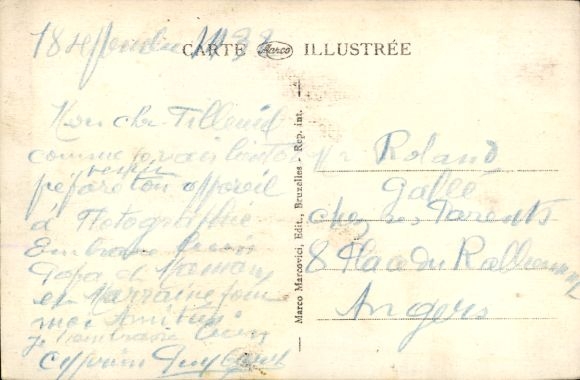 18 1938
CARTE Marco ILLUSTRÉE
Mon cher Filleul
comme je vais bientot
venir
préparé ton appareil
à Photographie
Embrasse bien
Papa et Maman
et Marraine pour
moi Amitiés
Je t'embrasse bien
Marco Marcovici, Edit., Bruxelles - Rep. int.
Mr Roland
Gallé
chez ses Parents
8 Place du Ralliement
Angers